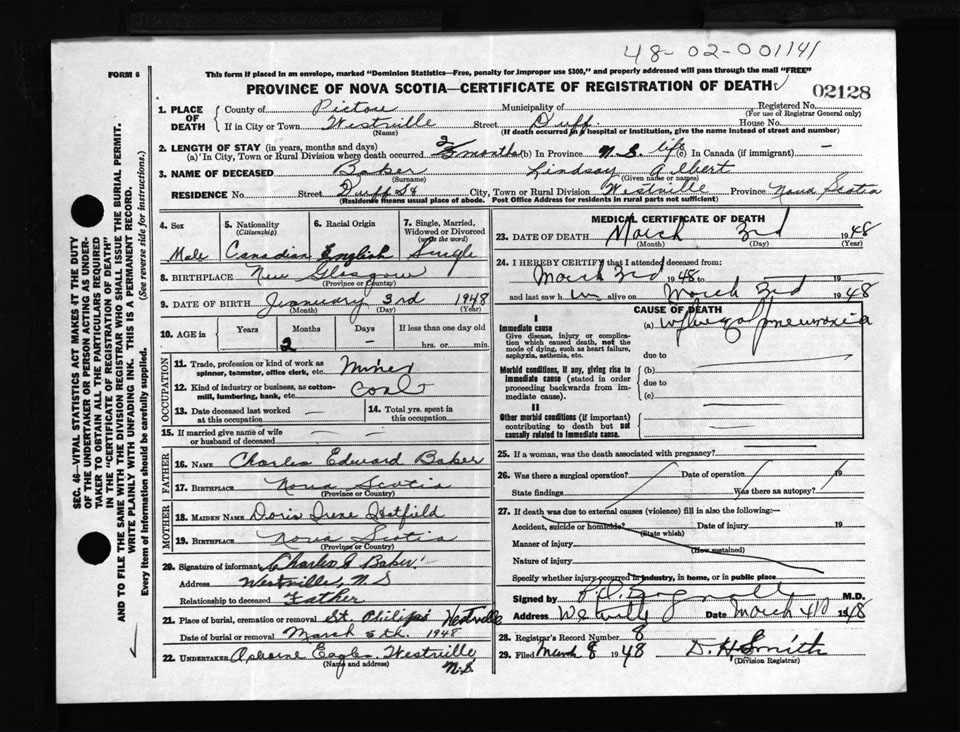 48-02-001141
FORM 6
This form if placed in an envelope, marked "Dominion Statistics—Free, penalty for improper use $300," and properly addressed will pass through the mail "FREE"
PROVINCE OF NOVA SCOTIA—CERTIFICATE OF REGISTRATION OF DEATH
02128
1. PLACE OF DEATH
County of Pictou Municipality of Registered No.
(For use of Registrar General only)
If in City or Town Westville Street Duff House No.
(Name) (If death occurred in a hospital or institution, give the name instead of street and number)
2. LENGTH OF STAY (in years, months and days)
(a) In City, Town or Rural Division where death occurred 2 months (b) In Province N.S. life (c) In Canada (if immigrant) —
3. NAME OF DECEASED Baker Lindsay Albert
(Surname) (Given name or names)
RESIDENCE No. Street Duff St City, Town or Rural Division Westville Province Nova Scotia
(Residence means usual place of abode. Post Office Address for residents in rural parts not sufficient)
4. Sex
Male
5. Nationality
(Citizenship)
Canadian
6. Racial Origin
English
7. Single, Married, Widowed or Divorced
(write the word)
Single
8. BIRTHPLACE New Glasgow
(Province or Country)
9. DATE OF BIRTH January 3rd 1948
(Month) (Day) (Year)
10. AGE in Years Months Days If less than one day old
2 — hrs. or min.
OCCUPATION
11. Trade, profession or kind of work as spinner, teamster, office clerk, etc. Miner
12. Kind of industry or business, as cotton-mill, lumbering, bank, etc. Coal
13. Date deceased last worked at this occupation —
14. Total yrs. spent in this occupation
15. If married give name of wife or husband of deceased — —
FATHER
16. NAME Charles Edward Baker
17. BIRTHPLACE Nova Scotia
(Province or Country)
MOTHER
18. MAIDEN NAME Doris Irene Hatfield
19. BIRTHPLACE Nova Scotia
(Province or Country)
20. Signature of informant Charles E Baker
Address Westville, N.S
Relationship to deceased Father
21. Place of burial, cremation or removal St. Philips Westville
Date of burial or removal March 5th. 1948
22. UNDERTAKER Eagles Westville
(Name and address) N.S
MEDICAL CERTIFICATE OF DEATH
23. DATE OF DEATH March 3rd 1948
(Month) (Day) (Year)
24. I HEREBY CERTIFY that I attended deceased from:
March 3rd 1948 to 19
and last saw h alive on March 3rd 1948
CAUSE OF DEATH
I
Immediate cause
Give disease, injury or complication which caused death, not the mode of dying, such as heart failure, asphyxia, asthenia, etc.
(a) Influenzal pneumonia
due to
Morbid conditions, if any, giving rise to immediate cause (stated in order proceeding backwards from immediate cause).
(b)
due to
(c)
II
Other morbid conditions (if important) contributing to death but not causally related to immediate cause.
25. If a woman, was the death associated with pregnancy?
26. Was there a surgical operation? Date of operation 19
State findings Was there an autopsy?
27. If death was due to external causes (violence) fill in also the following:—
Accident, suicide or homicide? Date of injury 19
(State which)
Manner of injury
(How sustained)
Nature of injury
Specify whether injury occurred in industry, in home, or in public place
Signed by M.D.
Address Westville Date March 4 1948
28. Registrar's Record Number 8
29. Filed March 8 1948 D. H. Smith
(Division Registrar)
SEC. 46—VITAL STATISTICS ACT MAKES IT THE DUTY OF THE UNDERTAKER OR PERSON ACTING AS UNDERTAKER TO OBTAIN ALL THE PARTICULARS REQUIRED IN THE "CERTIFICATE OF REGISTRATION OF DEATH" AND TO FILE THE SAME WITH THE DIVISION REGISTRAR WHO SHALL ISSUE THE BURIAL PERMIT.
WRITE PLAINLY WITH UNFADING INK. THIS IS A PERMANENT RECORD.
Every item of Information should be carefully supplied. (See reverse side for instructions.)